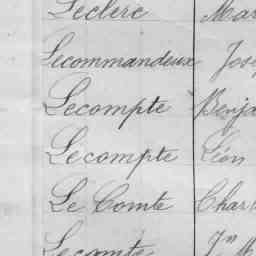 Leclerc Mar
Lecommandeux Jose
Lecompte Benja
Lecompte Léon
Le Comte Charl
Lecomte Jn M